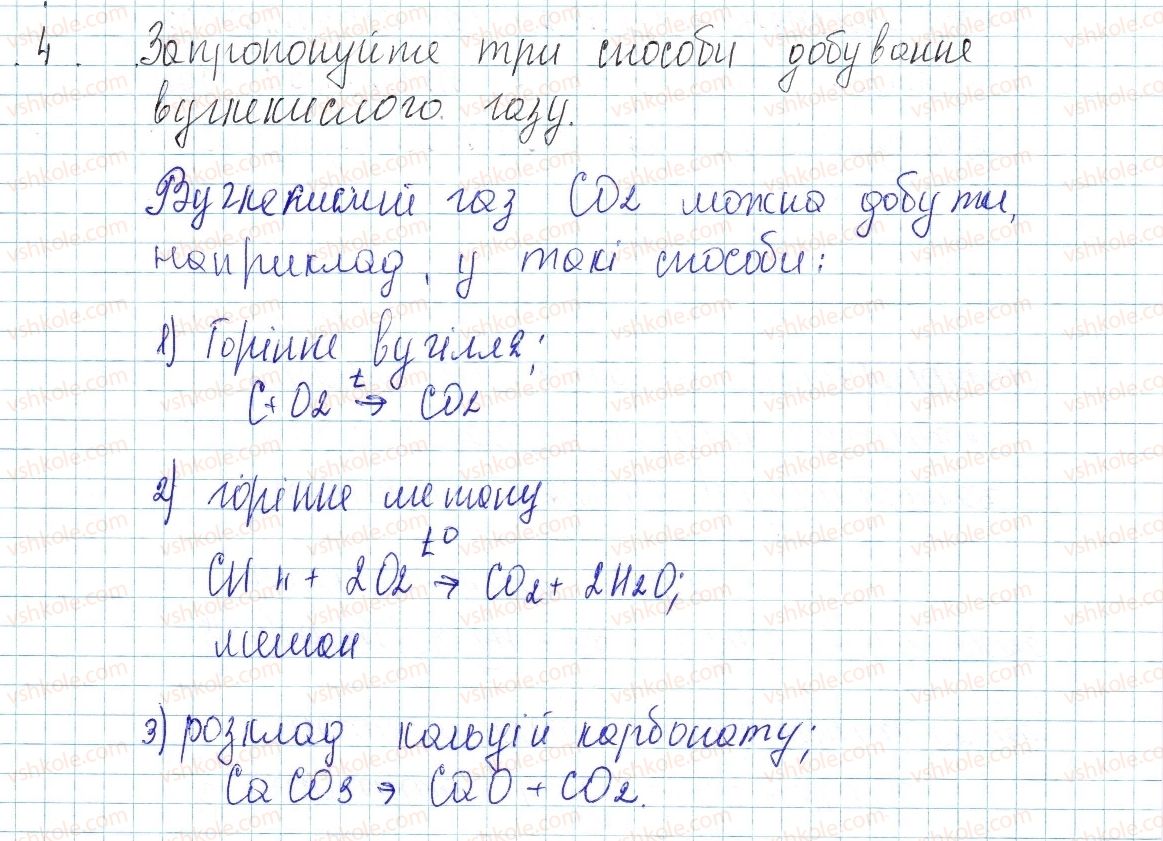 4. Запропонуйте три способи добування
вуглекислого газу.
Вуглекислий газ CO2 можна добути,
наприклад, у такі способи:
1) Горіння вугілля;
C + O2 t→ CO2
2) горіння метану
CH4 + 2O2 t0→ CO2 + 2H2O;
метан
3) розклад кальцій карбонату;
CaCO3 → CaO + CO2.